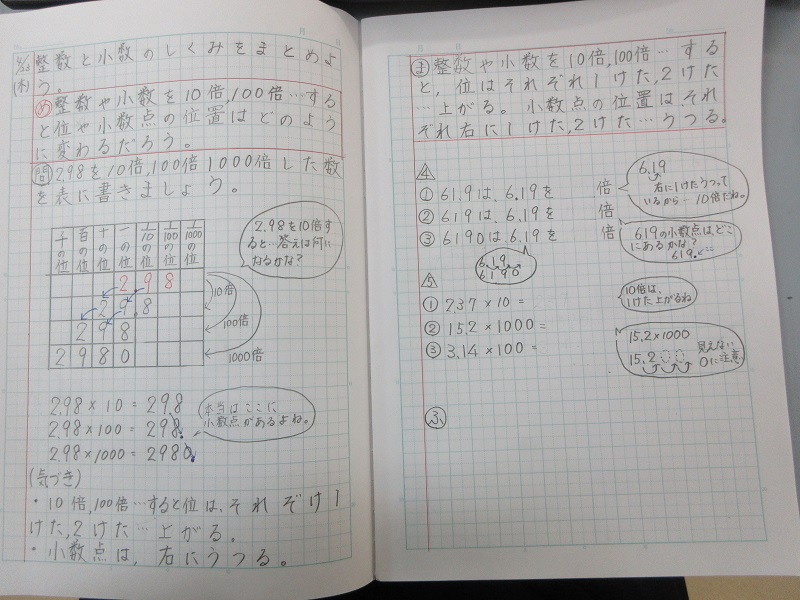 6/23
(木)
整数と小数のしくみをまとめよ
う。
め 整数や小数を10倍,100倍…する
と位や小数点の位置はどのよう
に変わるだろう。
問 2.98を10倍,100倍1000倍した数
を表に書きましょう。
千の位 百の位 十の位 一の位 1/10の位 1/100の位 1/1000の位
2 9 8
2 9.8
2 9 8
2 9 8 0
10倍
100倍
1000倍
2.98を10倍す
ると…答えは何に
なるかな?
2.98×10=29.8
2.98×100=298.
2.98×1000=2980.
本当はここに
小数点があるよね。
(気づき)
・10倍,100倍…すると位は、それぞけ1
けた,2けた…上がる。
・小数点は,右にうつる。
ま 整数や小数を10倍,100倍…する
と,位はそれぞれ1けた,2けた
…上がる。小数点の位置はそれ
ぞれ右に1けた,2けた…うつる。
4
①61.9は、6.19を 倍
②619は、6.19を 倍
③6190は、6.19を 倍
6.19
右に1けたうつって
いるから…10倍だね。
619の小数点はどこ
にあるかな?
619.
6.19
6190
5
①2.37×10=
②15.2×1000=
③3.14×100=
10倍は、
1けた上がるね
15.2×1000
15.2
見えない
0に注意
ふ